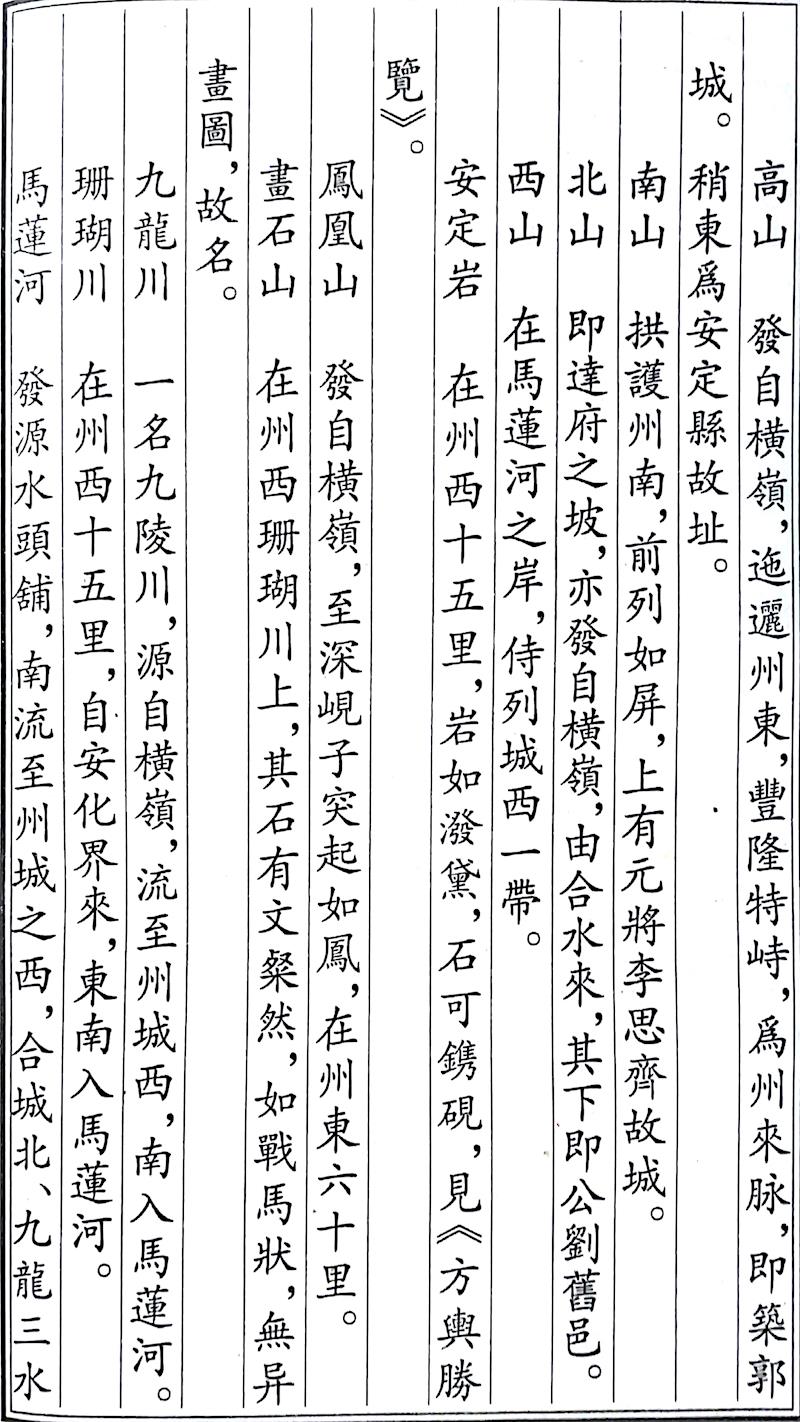 高山　發自橫嶺，迤邐州東，豐隆特峙，爲州來脉，即築郭
城。稍東爲安定縣故址。
南山　拱護州南，前列如屏，上有元將李思齊故城。
北山　即達府之坡，亦發自橫嶺，由合水來，其下即公劉舊邑。
西山　在馬蓮河之岸，侍列城西一帶。
安定岩　在州西十五里，岩如潑黛，石可鐫硯，見《方輿勝
覽》。
鳳凰山　發自橫嶺，至深峴子突起如鳳，在州東六十里。
畫石山　在州西珊瑚川上，其石有文粲然，如戰馬狀，無异
畫圖，故名。
九龍川　一名九陵川，源自橫嶺，流至州城西，南入馬蓮河。
珊瑚川　在州西十五里，自安化界來，東南入馬蓮河。
馬蓮河　發源水頭舖，南流至州城之西，合城北、九龍三水